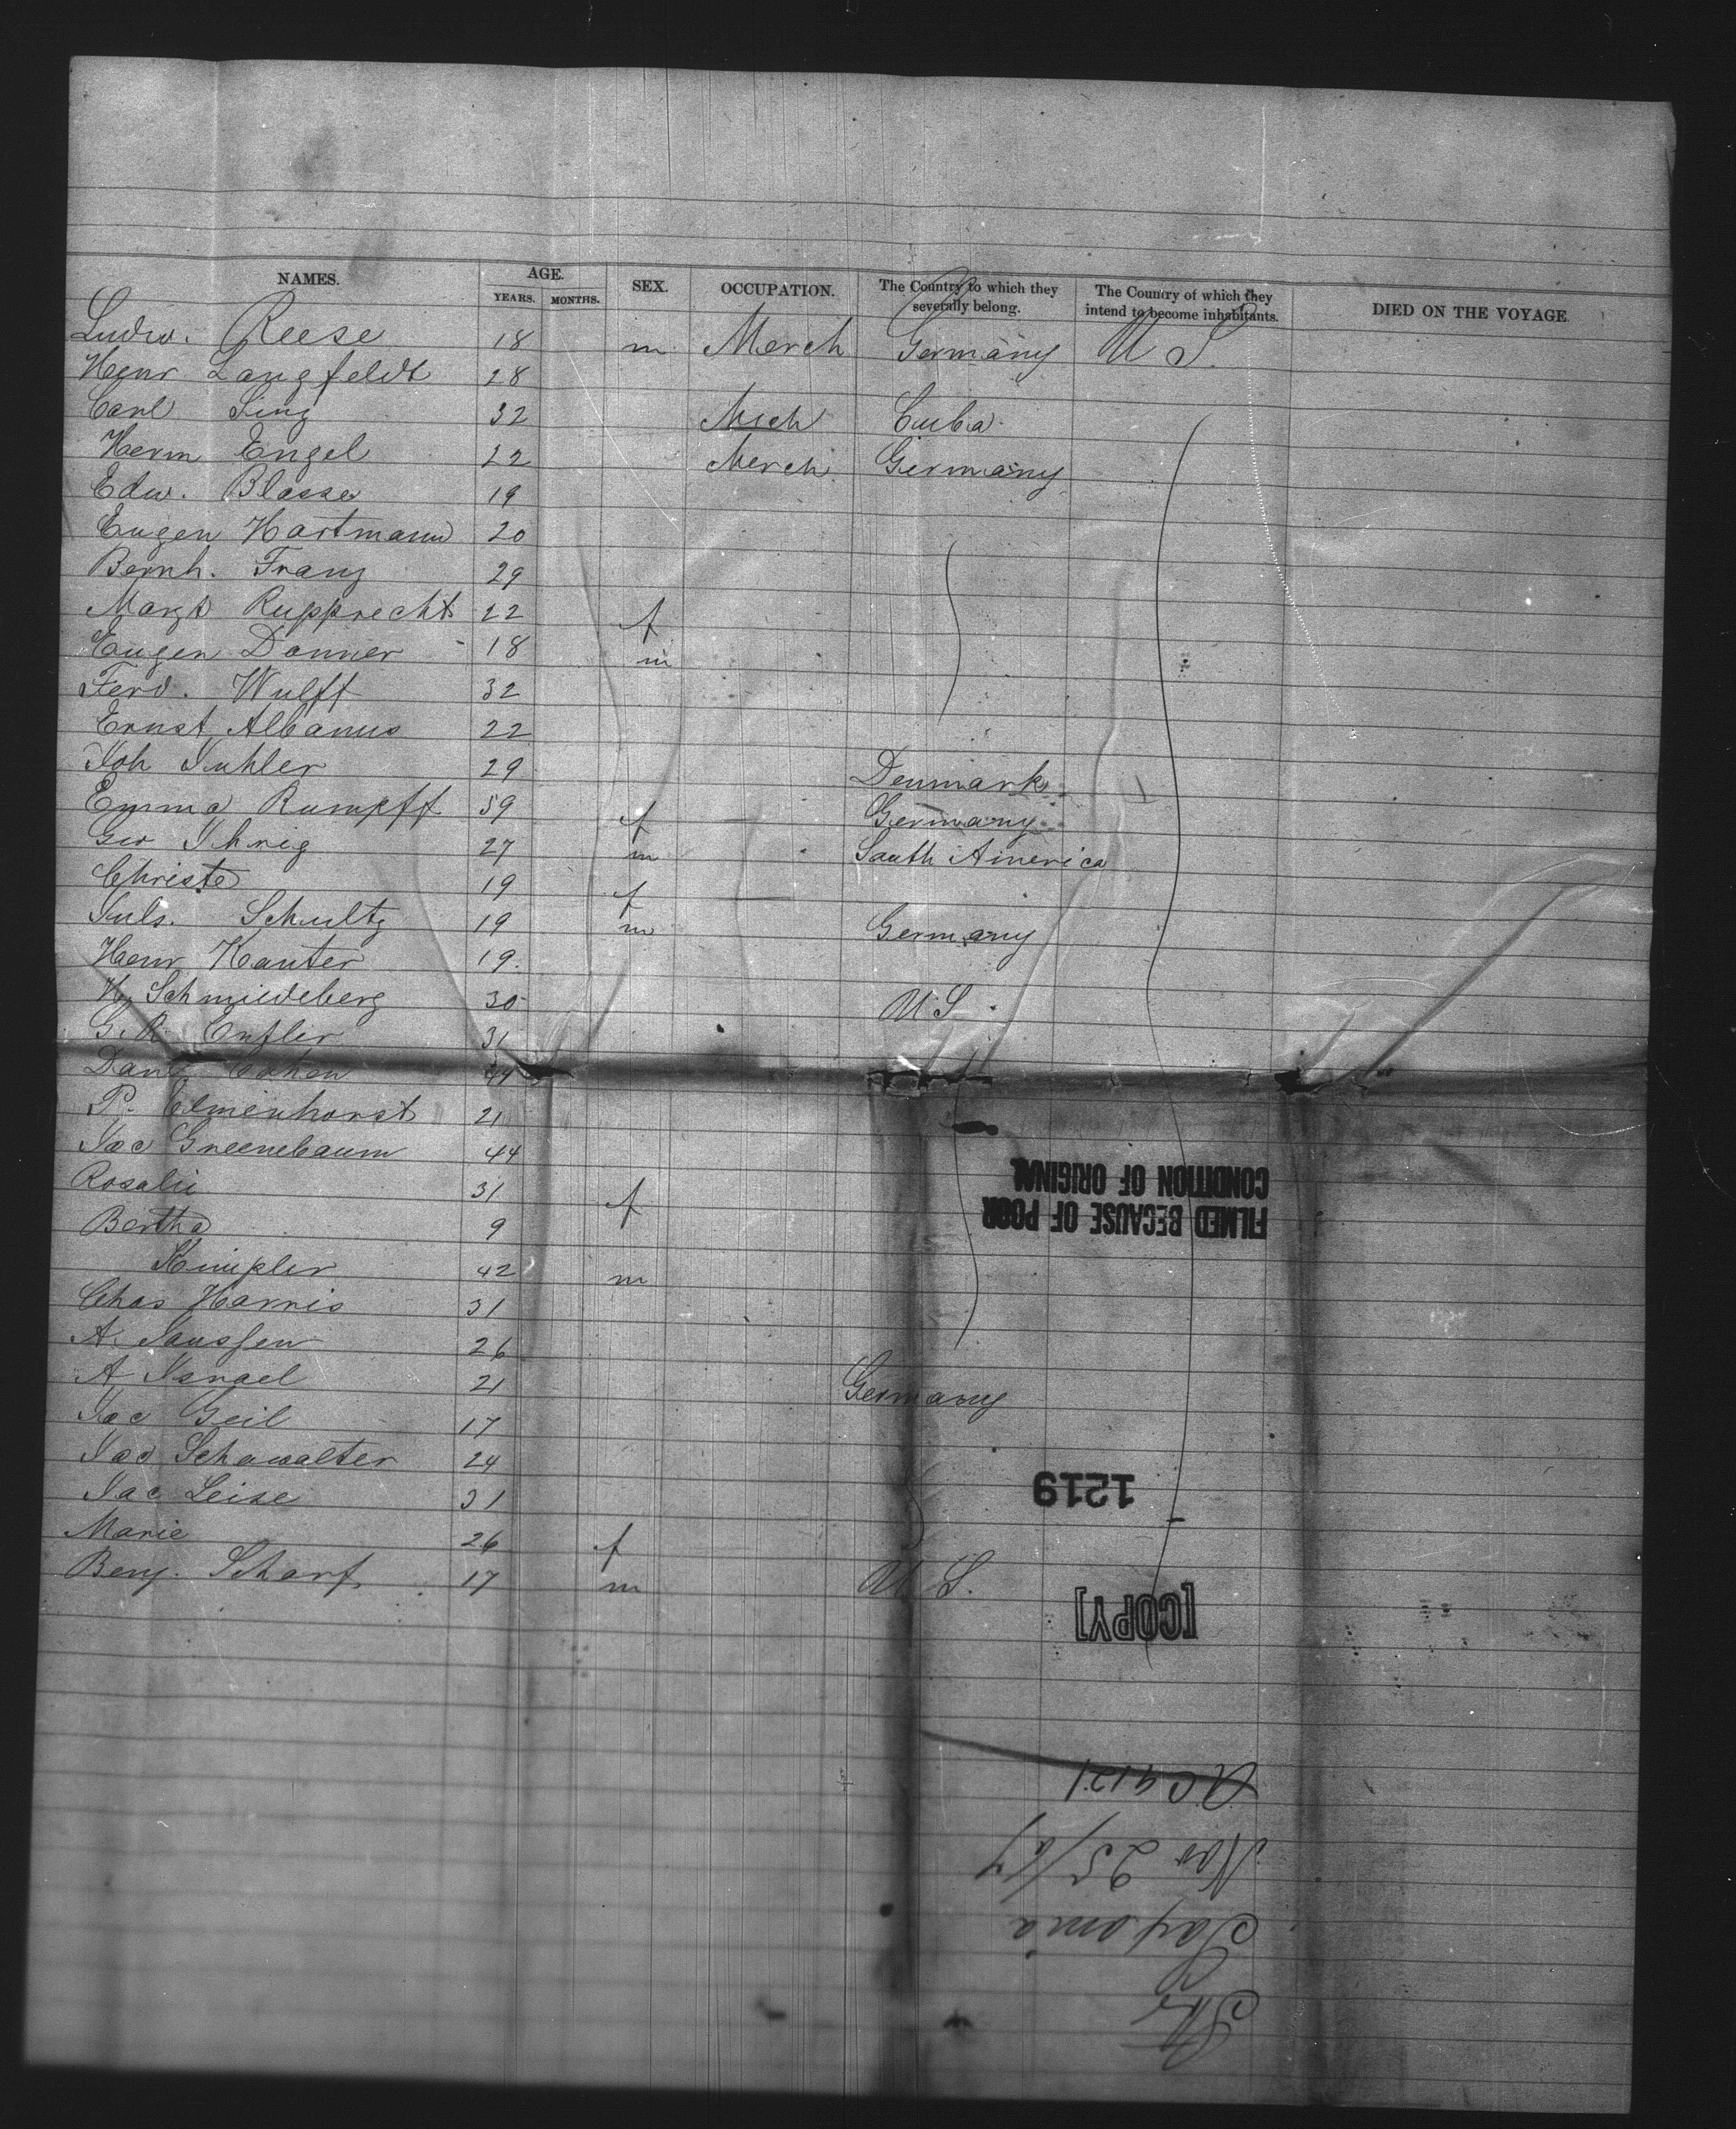 NAMES. AGE. SEX. OCCUPATION. The Country to which they severally belong. The Country of which they intend to become inhabitants. DIED ON THE VOYAGE
YEARS. MONTHS.
Ludw. Reese 18 m Merch Germany U S.
Henr Langfeldt 28
Carl Ling 32 Mech Cuba
Herm Engel 22 Merch Germany
Edw. Blasse 19
Eugen Hartmann 20
Bernh. Franz 29
Margt Rupprecht 22 f
Eugen Donner 18 m
Ferd. Wulff 32
Ernst Albanus 22
Joh Juhler 29 Denmark
Emma Rumpff 59 f Germany
Geo Ihrig 27 m South America
Christe 19 f
Juls. Schultz 19 m Germany
Henr Kanter 19.
H. Schmiedeberg 30 U.S.
G. R. 31
Danl Cohen 44
P. Elmenhorst 21
Jac Greenebaum 44
Rosalie 31 f
Bertha 9
Kimpler 42 m
Chas Harris 31
A. Janssen 26
A Israel 21 Germany
Jac Geil 17
Jac Schawalter 24
Jac Leise 31
Marie 26 f
Benj. Scharf 17 m U S.
FILMED BECAUSE OF POOR
CONDITION OF ORIGINAL
1219
[COPY]
Str
Saxonia
Nov 25/67